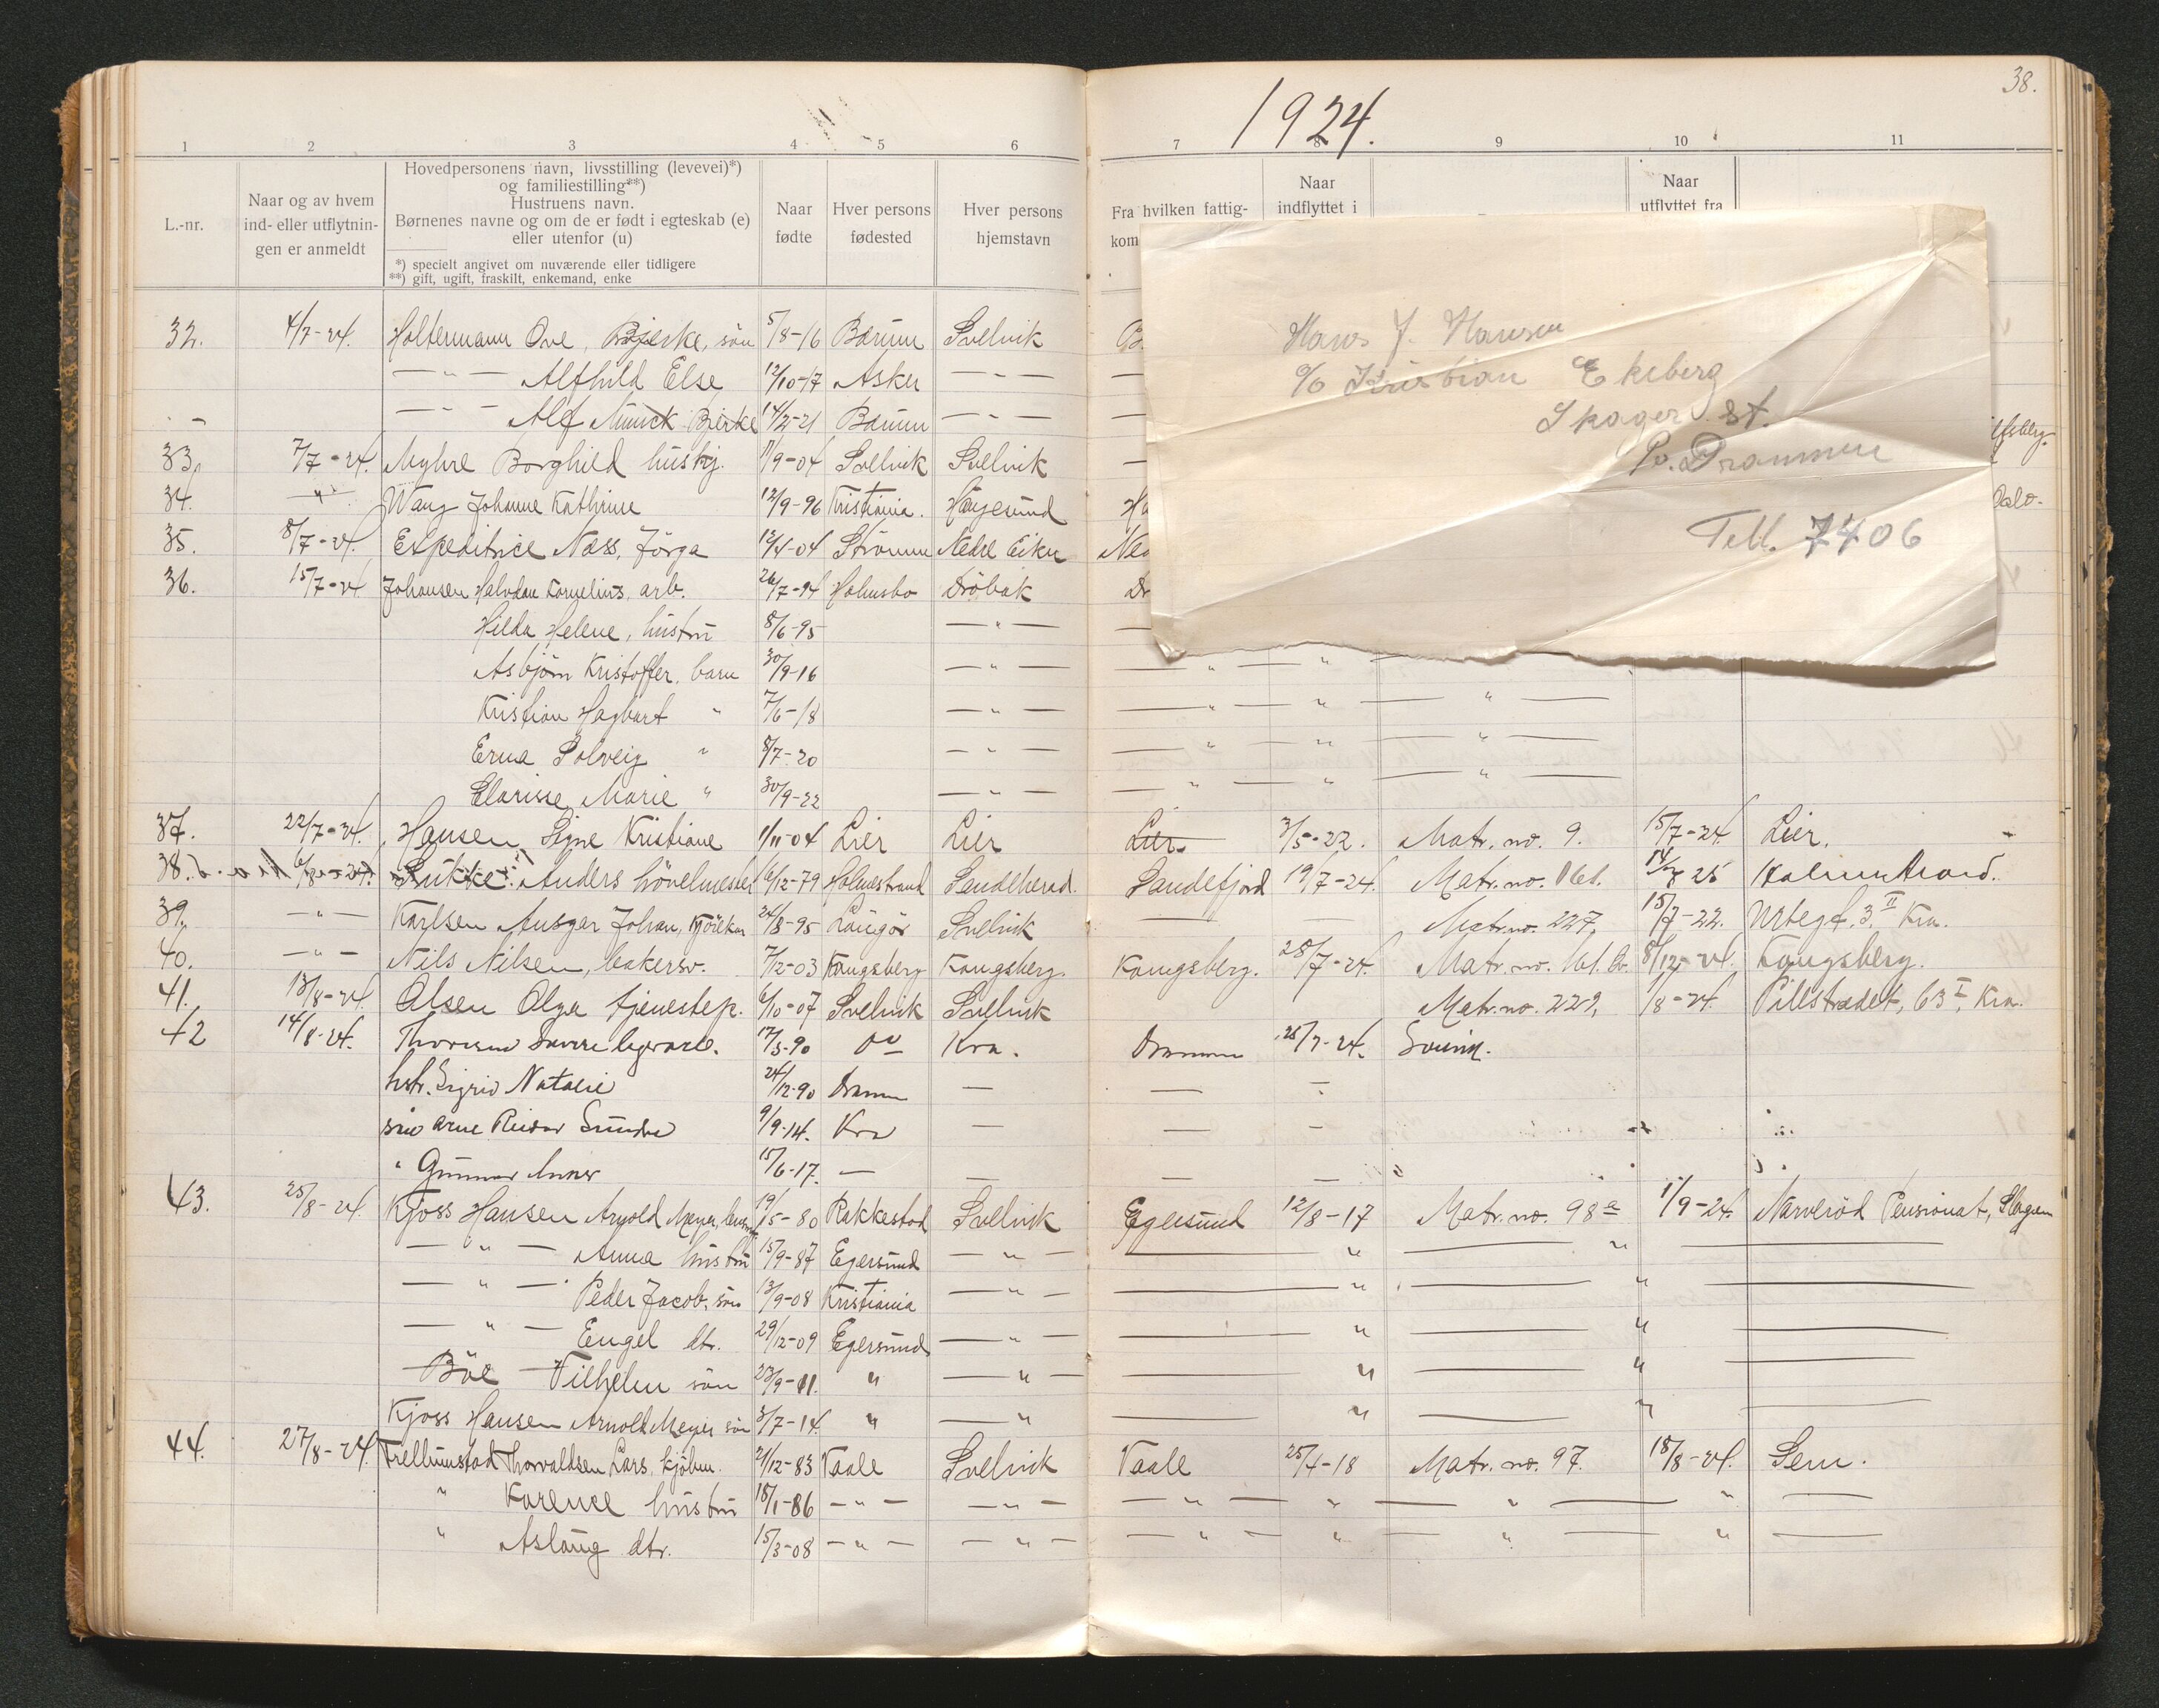 38.
1924.
1 2 3 4 5 6 7 8 9 10 11
L.-nr.
Naar og av hvem
ind- eller utflytnin-
gen er anmeldt
Hovedpersonens navn, livsstilling (levevei)*)
og familiestilling**)
Hustruens navn.
Børnenes navne og om de er født i egteskab (e)
eller utenfor (u)
*) specielt angivet om nuværende eller tidligere
**) gift, ugift, fraskilt, enkemand, enke
Naar
fødte
Hver persons
fødested
Hver persons
hjemstavn
Fra hvilken fattig-
kom
Naar
indflyttet i
Naar
utflyttet fra
Hans J. Hansen
c/o Kristian Ekeberg
Skoger st.
Pr. Drammen
Telf. 7406
32. 4/7-24. Holtermann Ove, Bjerke, sön 5/8-16 Bærum Svelvik B
— " — Alfhild Else 12/10-17 Asker — " — —
— " — Alf Munck Bjerke 14/2-21 Bærum — " — —
33. 7/7-24. Myhre Borghild hushj. 11/9-04 Svelvik Svelvik —
34. — " — Wang Johanne Kathrine 12/9-96 Kristiania. Haugesund Ha
35. 8/7-24. Expeditrice Næss, Jörga 12/4-04 Strömm Nedre Eiker Ned
36. 15/7-24 Johansen Halvdan Kornelius, arb. 26/7-94 Holmsbo Dröbak Dr
Hilda Helene, hustru 8/6-95 — " — —
Asbjörn Kristoffer, barn 30/9-16 — " — — " — "
Kristian Hagbart " 7/6-18 — " — — " — " — " —
Erna Solveig " 8/7-20 — " — — " — " — " —
Clarisse Marie " 30/9-22 — " — — " — " — " —
37. 22/7-24. Hansen, Signe Kristiane 1/11-04 Lier Lier Lier. 3/5-22. Matr. no. 9. 15/7-24 Lier.
38. 6/8-24. Anders hövelmester 6/12-79 Holmestrand Sandeherred. Sandefjord 19/7-24. Matr. no. 161. 25 Holmestrand.
39. — " — Karlsen Ansgar Johan, Kjörekar 24/8-95 Langör Svelvik — — Matr. no. 227, 15/7-22. Urtegt. 3 II Kra.
40. — " — Nils Nilsen, bakersv. 7/12-03 Kongsberg Kongsberg. Kongsberg. 28/7-24. Matr. no. 161. 8/12-24. Kongsberg.
41. 13/8-24. Olsen Olga tjenestep. 6/10-07 Svelvik Svelvik Matr. no. 229, 1/8-24. Pillestrædet, 63 I, Kra.
42 14/8-24. Thoresen Sverre 17/3-90 do Kra. Drammen 25/7-24. Svelvik.
hstr. Sigrid Natalie 24/12-90 Dramm — — —
sön Arne Reidar Sundre 9/9-14. Kra — — —
" Gunnar 15/6-17. — — — —
43. 25/8-24. Kjoss Hansen Arnold Meyer, 19/5-80 Rakkestad Svelvik Egersund 12/8-17 Matr. no. 98 a 1/9-24. Narveröd Pensionat, Slagen
— " — Anna hustru 15/9-87 Egersund — " — — " — " —
— " — Peder Jacob, sön 13/9-08 Kristiania — " — — " — " —
— " — Engel dtr. 29/12-09 Egersund — " — — " — " —
Böe — Vilhelm sön 23/9-11. " — " — — " — " —
Kjoss Hansen Arnold Meyer sön 3/7-14. " — " — " — " —
44. 27/8-24. Trellumstad Thorvaldsen Lars, kjöbm. 21/12-83 Vaale Svelvik Vaale 25/4-18 Matr. no. 97. 18/8-24. Sem.
" Karence hustru 18/1-86 — " — — " — — " — " — " — " —
" Aslaug dtr. 15/3-08 — " — — " — — " — " — " — " —